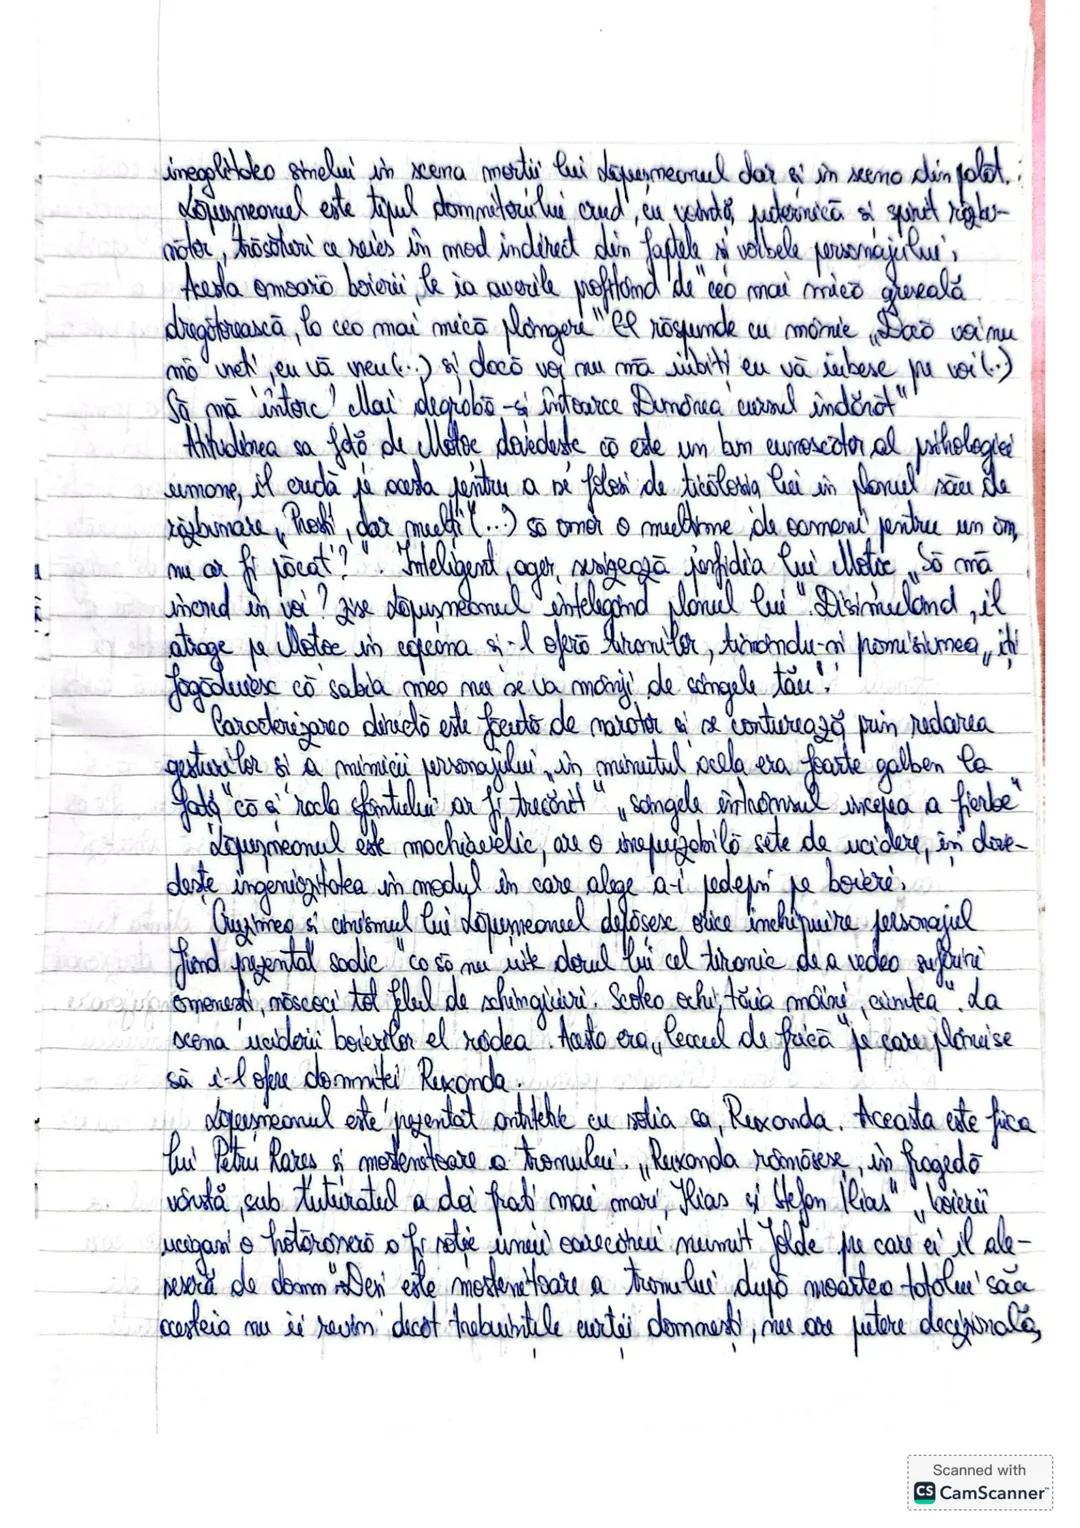 inegalitatea sinelui in scena mortii lui Lăpușneanul dar și in scena din palat.
Lăpușneanul este tipul domnitorului crud, cu voință puternică si spirit răzbu-
nător, trăsături ce reies în mod indirect din faptele si vorbele personajului.
Acesta omoară boierii, le ia averile profitând de "cea mai mică greseală
dregătorească, la cea mai mică plângere" El răspunde cu mânie „Dacă voi nu
mă vreti, eu vă vreu (...) si dacă voi nu mă iubiti eu vă iubesc pe voi (...)
Să mă întorc? Mai degrabă-și întoarce Dunărea cursul îndărăt"
Atitudinea sa fată de Motoc dovedeste că este un bun cunoscător al psihologiei
umane, il crută pe acesta pentru a se folosi de ticălosia lui in planul său de
răzbunare „Prosti, dar multi" (...) să omor o multime de oameni pentru un om,
nu ar fi păcat?". Inteligent, ager, sesizează perfidia lui Motoc „Să mă
incred in voi? zise Lăpușneanul intelegând planul lui". Disimuland, il
atrage pe Motoc in capcana si-l oferă tiranilor, tinându-si promisiunea „iti
făgăduiesc că sabia mea nu se va mânji de sângele tău".
Caracterizarea directă este făcută de narator si se conturează prin redarea
gesturilor si a mimicii personajului „in minutul acela era foarte galben la
fată "că si racla sfântului ar fi tresărit" „sângele intrânsul incepea a fierbe"
Lăpușneanul este machiavelic, are o inepuizabilă sete de ucidere, isi dove-
deste ingeniozitatea in modul in care alege a-i pedepsi pe boieri.
Cruzimea si cinismul lui Lăpușneanul depăsesc orice inchipuire personajul
fiind prezentat sadic "ca să nu uite dorul lui cel tiranic de a vedea suferiri
omenesti, născoci tot felul de schingiuiri. Scotea ochi, tăia mâini, ciuntea". La
scena uciderii boierilor el râdea. Acesta era „leacul de frică" pe care plănuise
să i-l ofere domnitei Ruxanda.
Lăpușneanul este prezentat antitetic cu sotia sa, Ruxanda. Aceasta este fiica
lui Petru Rares si mostenitoare a tronului. „Ruxanda rămăsese, in fragedă
vârstă, sub tuturatul a doi frati mai mari, Ilias si Stefan Ilias" „boierii
ucigasi o hotărâseră a fi sotie unui oarecărui numit Jolde pe care ei il ale-
seseră de domn". Desi este mostenitoare a tronului după moartea tatălui său
acesteia nu ii revin decât trebuintele curtii domnesti, nu are putere decizională,
Scanned with
CS CamScanner